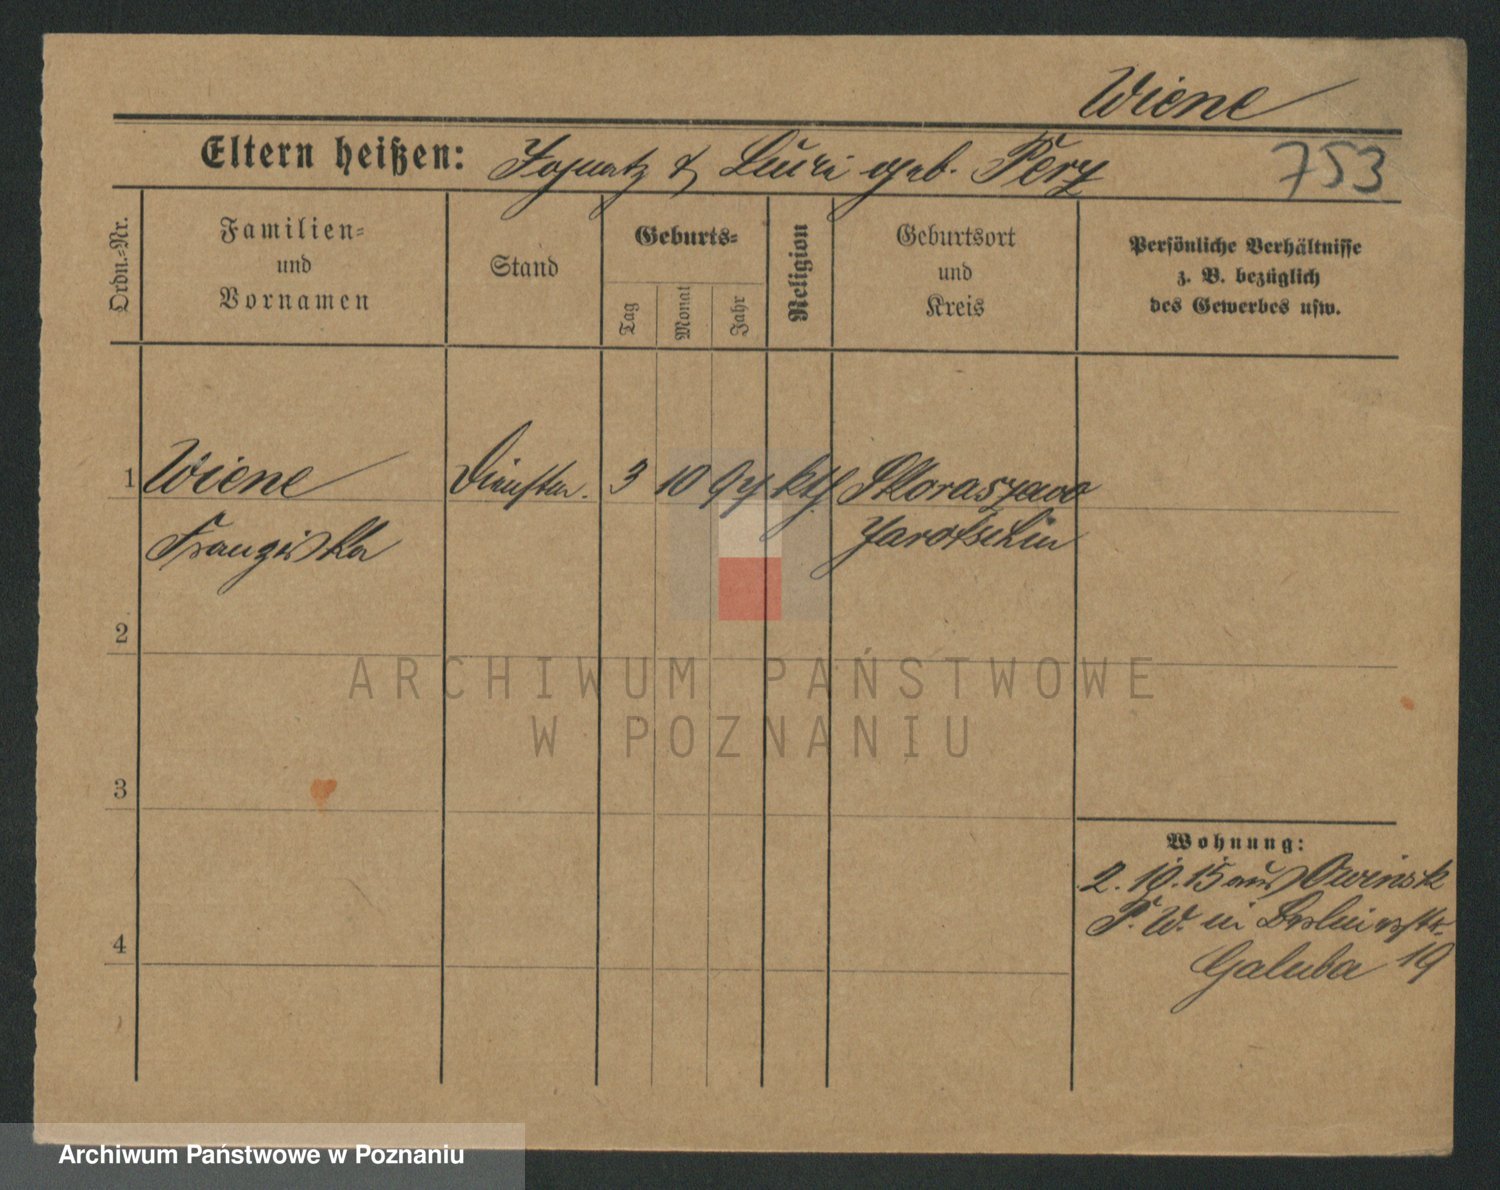 Wiene
Eltern heißen: Ignatz & Luzi geb. Perz
753
Ordn.-Nr.
Familien-
und
Vornamen
Stand
Geburts-
Tag
Monat
Jahr
Religion
Geburtsort
und
Kreis
Persönliche Verhältnisse
z. B. bezüglich
des Gewerbes usw.
1 Wiene 3 10 94 kth
Franziska Jarotschin
2
3
4
Wohnung:
2. 10. 15 aus Owinsk
P. W. in
Galuba 19
ARCHIWUM PAŃSTWOWE
W POZNANIU
Archiwum Państwowe w Poznaniu